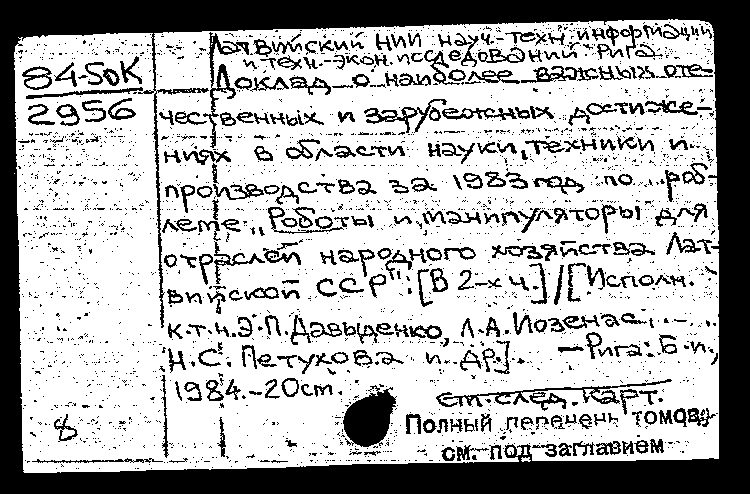 Латвийский НИИ науч.-техн. информации
и техн.-экон. исследований Рига.
84-5ОК
Доклад о наиболее важных оте-
2956
чественных и зарубежных достиже-
ниях в области науки, техники и
производства за 1983 год по проб-
леме „Роботы и манипуляторы для
отраслей народного хозяйства Лат-
вийской ССР": [В 2-х ч.] / [Исполн.
к.т.н. Э.П. Давыденко, Л.А. Иозенас,
Н.С. Петухова и др.]. — Рига: Б.и.,
1984.-20см.
см. след. карт.
8
Полный перечень томов
см. под заглавием